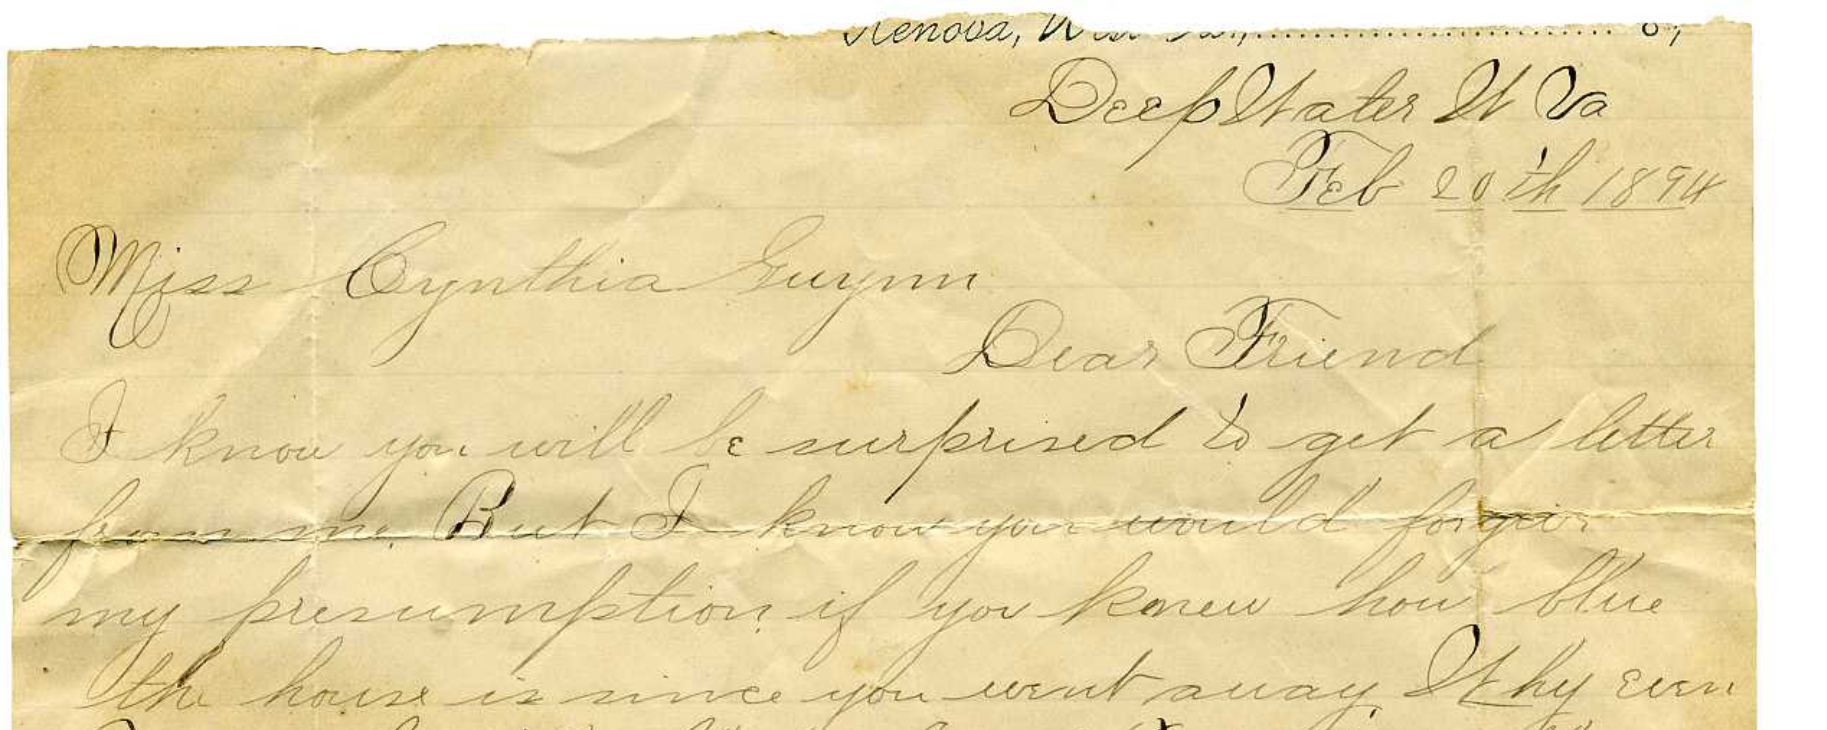 Kenova, West Va.,
Deep Water W Va
Feb 20th 1894
Miss Cynthia Gwynn
Dear Friend
I know you will be surprised to get a letter
from me. But I know you would forgive
my presumption if you knew how blue
the house is since you went away. Why even